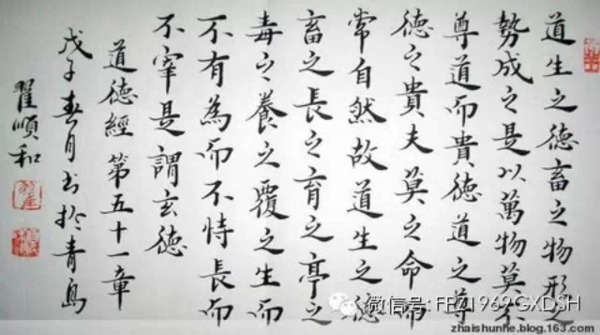 道生之德畜之物形之
勢成之是以萬物莫不
尊道而貴德道之尊
德之貴夫莫之命而
常自然故道生之德
畜之長之育之亭之
毒之養之覆之生而
不有為而不恃長而
不宰是謂玄德
道德經第五十一章
戊子春月书於青島
翟順和
微信号: FBZ1969GXDSH
zhaishunhe.blog.163.com